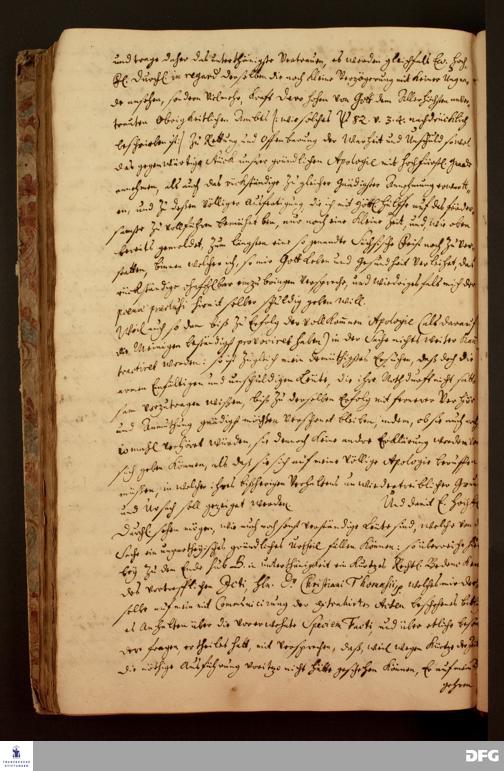 und trage daher das unterthänigste Vertrauen, es werden gleichfalls Ew. Hoch
Fl. Durchl. in regard derselben die noch kleine Verzögerung mit keiner Ungna
de ansehen, sondern Vielmehr, Krafft Dero hohen von Gott dem Allerhöchsten anver
trauten Obrigkeitlichen Ambts /: wie solches Ps. 82. v. 3. 4. nachdrücklich
beschrieben ist :/ Zu Rettung und Offenbarung der Warheit und Unschuld sowol
das gegenwärtige Stück unserer gründlichen Apologie mit Hochfürstl. Gnade
annehmen, als auch das rückständige zu gleicher Gnädigster Annehmung erwart
en, und zu dessen völliger Ausfertigung die ich mit Göttl. Hülffe auf das förder
samste zu vollführen bemühet bin, nur noch eine kleine Zeit, und wie oben
bereits gemeldet, zum längsten eine so genandte Sächsische Frist noch zu ver
statten, binnen welcher ich, so mir Gott Leben und Gesundheit verleihet, das
rückständige ohnfehlbar einzubringen verspreche, und wiedrigenfals mich der
poena praeclusi hiemit selber schuldig geben will.
Weil auch so dann biß zu Erfolg der vollkommenen Apologie (als darauf
die Meinigen beständig provociret haben) in der Sache nichts weiter kan
tractiret werden: so ist zugleich mein demüthigstes Ersuchen, daß doch die
armen Einfältigen und unschuldigen Leute, die ihre Nothdurfft nicht satt
sam vorzutragen wissen, biß zu derselben Erfolg mit fernerer Verhör
und Anmuthung gnädigst möchten verschonet bleiben, indem, ob sie auch noch
so vielmahl verhöret würden, sie dennoch keine andre Erklärung werden von
sich geben können, als daß sie sich auf meine völlige Apologie beruffen
müssen, in welcher ihres bißherigen Verhaltens unwiedertreiblicher Grund
und Ursach soll gezeiget werden. Und damit E. Hochf.
Durchl. sehen mögen, wie auch noch sonst verständige Leute sind, welche von der
Sache ein unpartheyisches gründliches Urtheil fällen können: so überreiche hier
bey zu dem Ende sub B. in unterthänigkeit ein kurtzes Rechtl. Bedencken
des vortrefflichen JCti, Hn. D. Christiani Thomasii, welches mir der
selbe auf mein mit Communicirung der gezwackter Acten beschehenes bitt
es Anhalten über die vorerwehnte Speciem Facti, und über etliche beson
dere Fragen ertheilet hatt, mit versprechen, daß, weil wegen Kürtze der Zeit
die nöthige Ausführung voritzo nicht hätte geschehen können, Er auf mein
gehren
FRANCKESCHE STIFTUNGEN
DFG